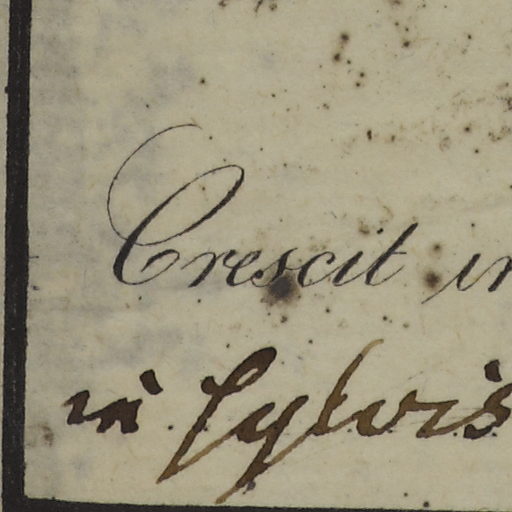 Crescit in
in sylvis